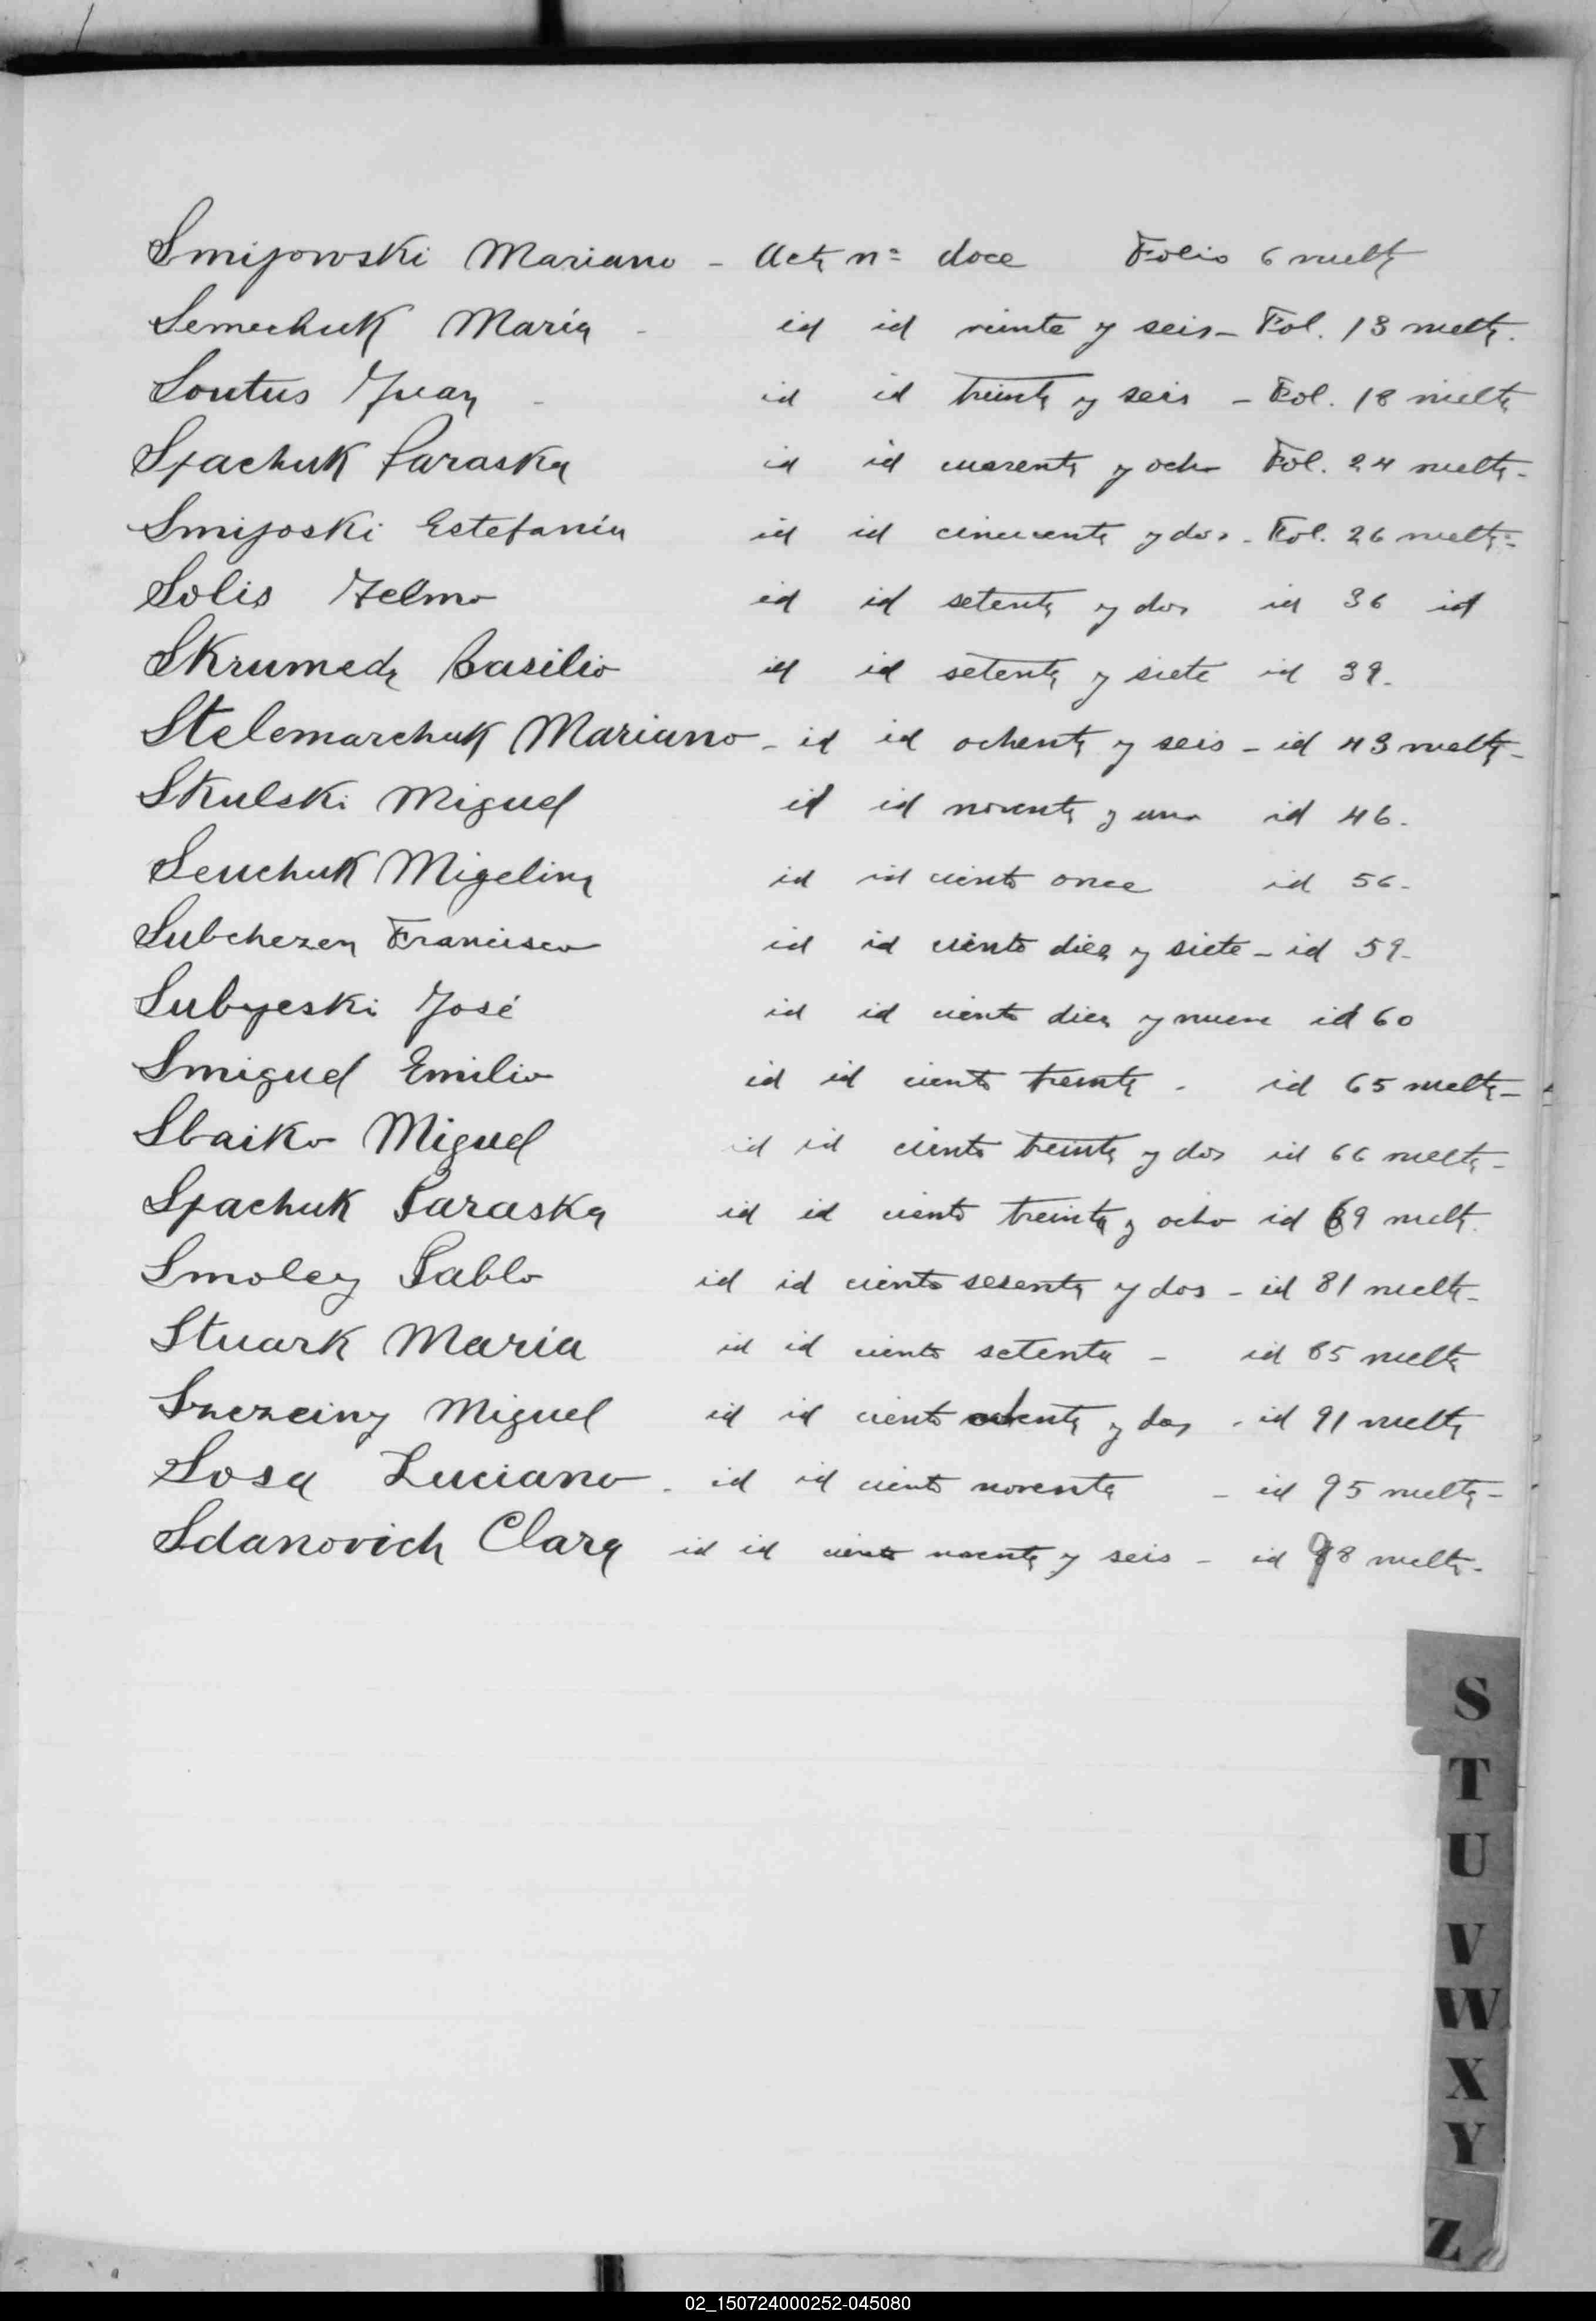 Smijowski Mariano - Acta nº doce Folio 6 vuelta
Semechuk María - id id veinte y seis - Fol. 13 vuelta.
Soutus Juan - id id treinta y seis - Fol. 18 vuelta
Spachuk Paraska id id cuarenta y ocho Fol. 24 vuelta -
Smijoski Estefanía id id cincuenta y dos - Fol. 26 vuelta -
Solis Zelmo id id setenta y dos id 36 id
Skrumeda Basilio id id setenta y siete id 39.
Stelemarchuk Mariano - id id ochenta y seis - id 43 vuelta -
Skulski Miguel id id noventa y uno id 46.
Seuchuk Migelina id id ciento once id 56.
Subchezen Francisco id id ciento diez y siete - id 59.
Subyeski José id id ciento diez y nueve id 60
Smiguel Emilio id id ciento treinta - id 65 vuelta -
Sbaiko Miguel id id ciento treinta y dos id 66 vuelta -
Spachuk Paraska id id ciento treinta y ocho id 69 vuelta.
Smoley Pablo id id ciento sesenta y dos - id 81 vuelta -
Stuark María id id ciento setenta - id 85 vuelta
Szczeciny Miguel id id ciento ochenta y dos - id 91 vuelta
Sosa Luciano - id id ciento noventa - id 95 vuelta -
Sdanovich Clara id id ciento noventa y seis - id 98 vuelta -
S
T
U
V
W
X
Y
Z
02_150724000252-045080